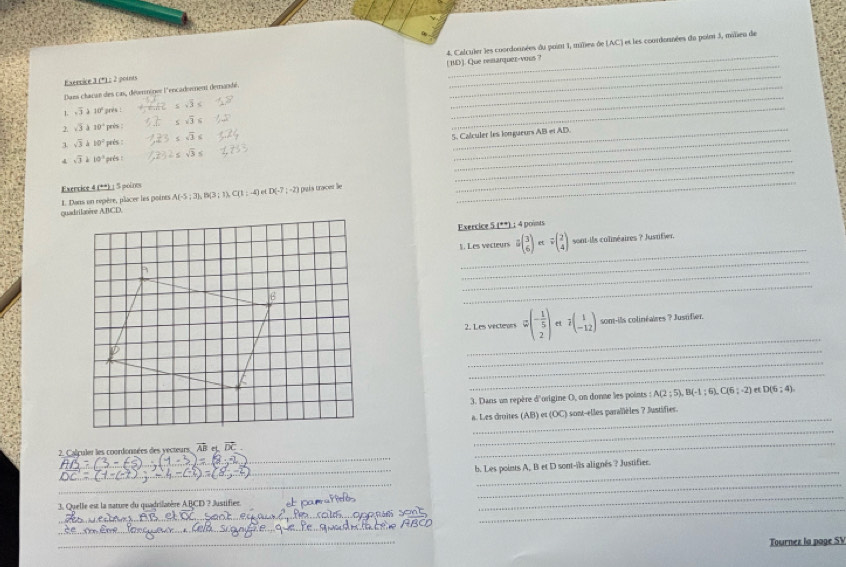 Exercice 3 (*) : 2 points
Dans chacun des cas, déterminer l'encadrement demandé.
1. √3 à 10⁰ près : ≤ √3 ≤
2. √3 à 10⁻¹ près : ≤ √3 ≤ 1,8
3. √3 à 10⁻² près : 1,73 ≤ √3 ≤ 1,74
4. √3 à 10⁻³ près : 1,732 ≤ √3 ≤ 1,733
Exercice 4 (**) : 5 points
1. Dans un repère, placer les points A(-5 ; 3), B(3 ; 1), C(1 ; -4) et D(-7 ; -2) puis tracer le
quadrilatère ABCD.
A
B
2. Calculer les coordonnées des vecteurs AB et DC.
AB = (3 - (-5) ; (1 - 3) = (8 ; -2)
DC = (1 - (-7) ; -4 - (-2) = (8 ; -2)
3. Quelle est la nature du quadrilatère ABCD ? Justifier.
et parallèles
Les vecteurs AB et DC sont égaux, les côtés opposés sont
de même longueur. Cela signifie que le quadrilatère ABCD
4. Calculer les coordonnées du point I, milieu de [AC] et les coordonnées du point J, milieu de
[BD]. Que remarquez-vous ?
5. Calculer les longueurs AB et AD.
Exercice 5 (**) : 4 points
1. Les vecteurs u(3 6) et v(2 4) sont-ils colinéaires ? Justifier.
2. Les vecteurs w(-1/5 2) et z(1 -12) sont-ils colinéaires ? Justifier.
3. Dans un repère d'origine O, on donne les points : A(2 ; 5), B(-1 ; 6), C(6 ; -2) et D(6 ; 4).
a. Les droites (AB) et (OC) sont-elles parallèles ? Justifier.
b. Les points A, B et D sont-ils alignés ? Justifier.
Tournez la page SV